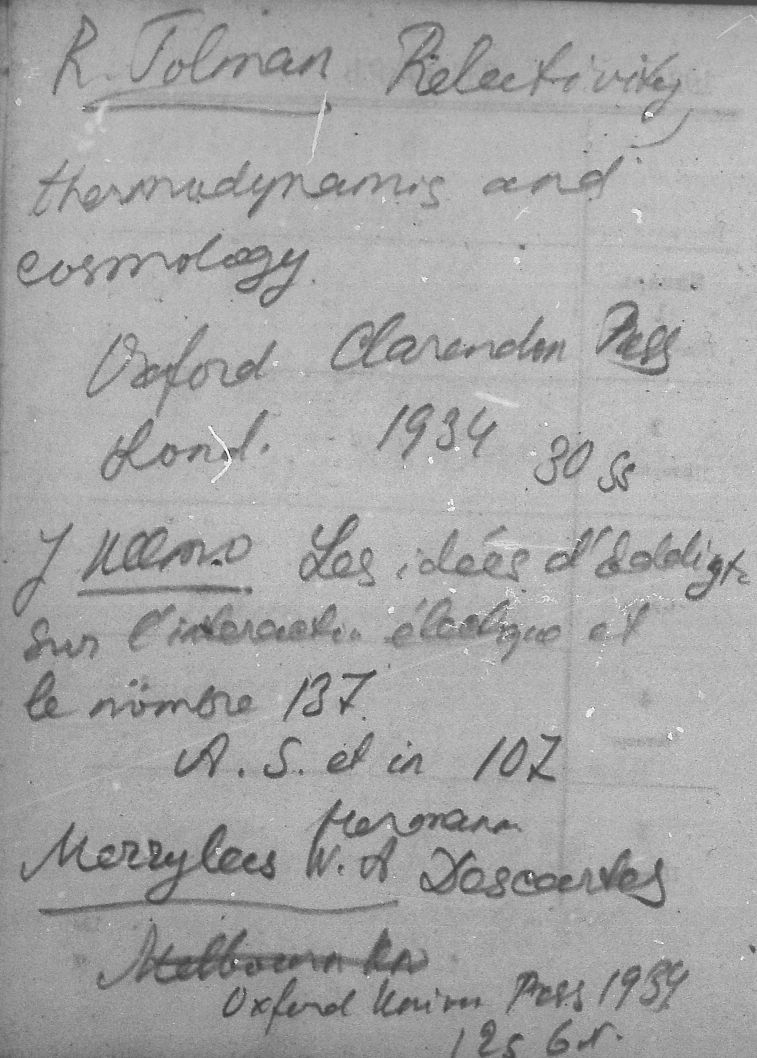 R. Tolman Relectivity,
thermodynamis and
cosmology.
Oxford Clarendon Press
Lond. 1934 30 ss
J Ullmo Les idées d'Eddigt
sur l'interactin électrique et
le nombre 137.
A. S. et in 107
Hermann.
Merrylees W. A Descartes
Melbourn
Oxford Univer Press 1934
12s 6d.